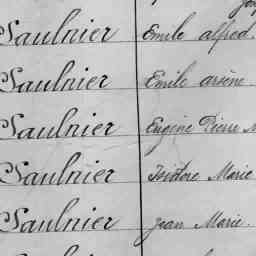 Saulnier Emile alfred.
Saulnier Emile arsène
Saulnier Eugène Pierre M
Saulnier Isidore Marie
Saulnier Jean Marie.